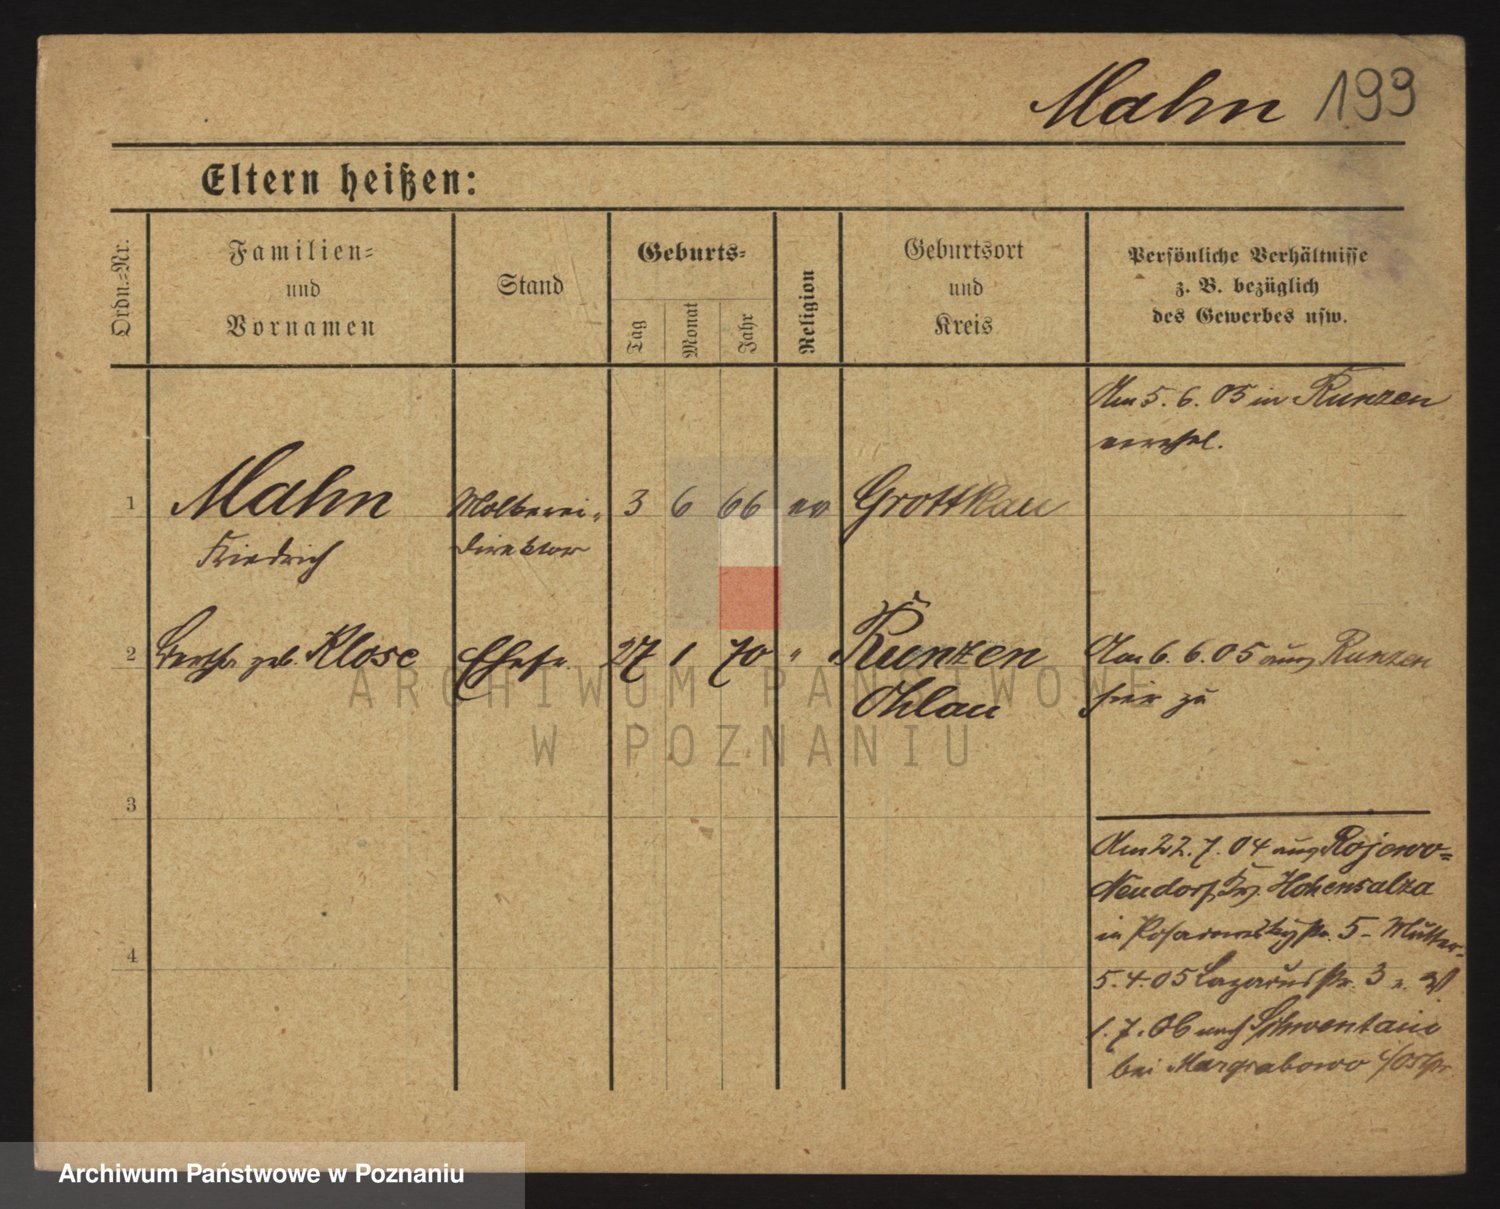 Mahn 199
Eltern heißen:
Ordn.-Nr.
Familien-
und
Vornamen
Stand
Geburts-
Tag
Monat
Jahr
Religion
Geburtsort
und
Kreis
Persönliche Verhältnisse
z. B. bezüglich
des Gewerbes usw.
Am 5. 6. 05 in Runzen
verehel.
1 Mahn Molkerei- 3 6 66 ev Grottkau
Friedrich direktor
2 Bertha geb. Klose Ehefr. 27 1 70 " Runzen Am 6. 6. 05 aus Runzen
Ohlau hier zu
3
Am 22. 7. 04 aus Rojewo-
Neudorf, Kr. Hohensalza
in 5 - Mutter
4
5. 4. 05 Lazarusstr. 3 W.
1. 7. 06 nach Schwentain
bei Margrabowo i/Ostpr.
ARCHIWUM PAŃSTWOWE
W POZNANIU
Archiwum Państwowe w Poznaniu